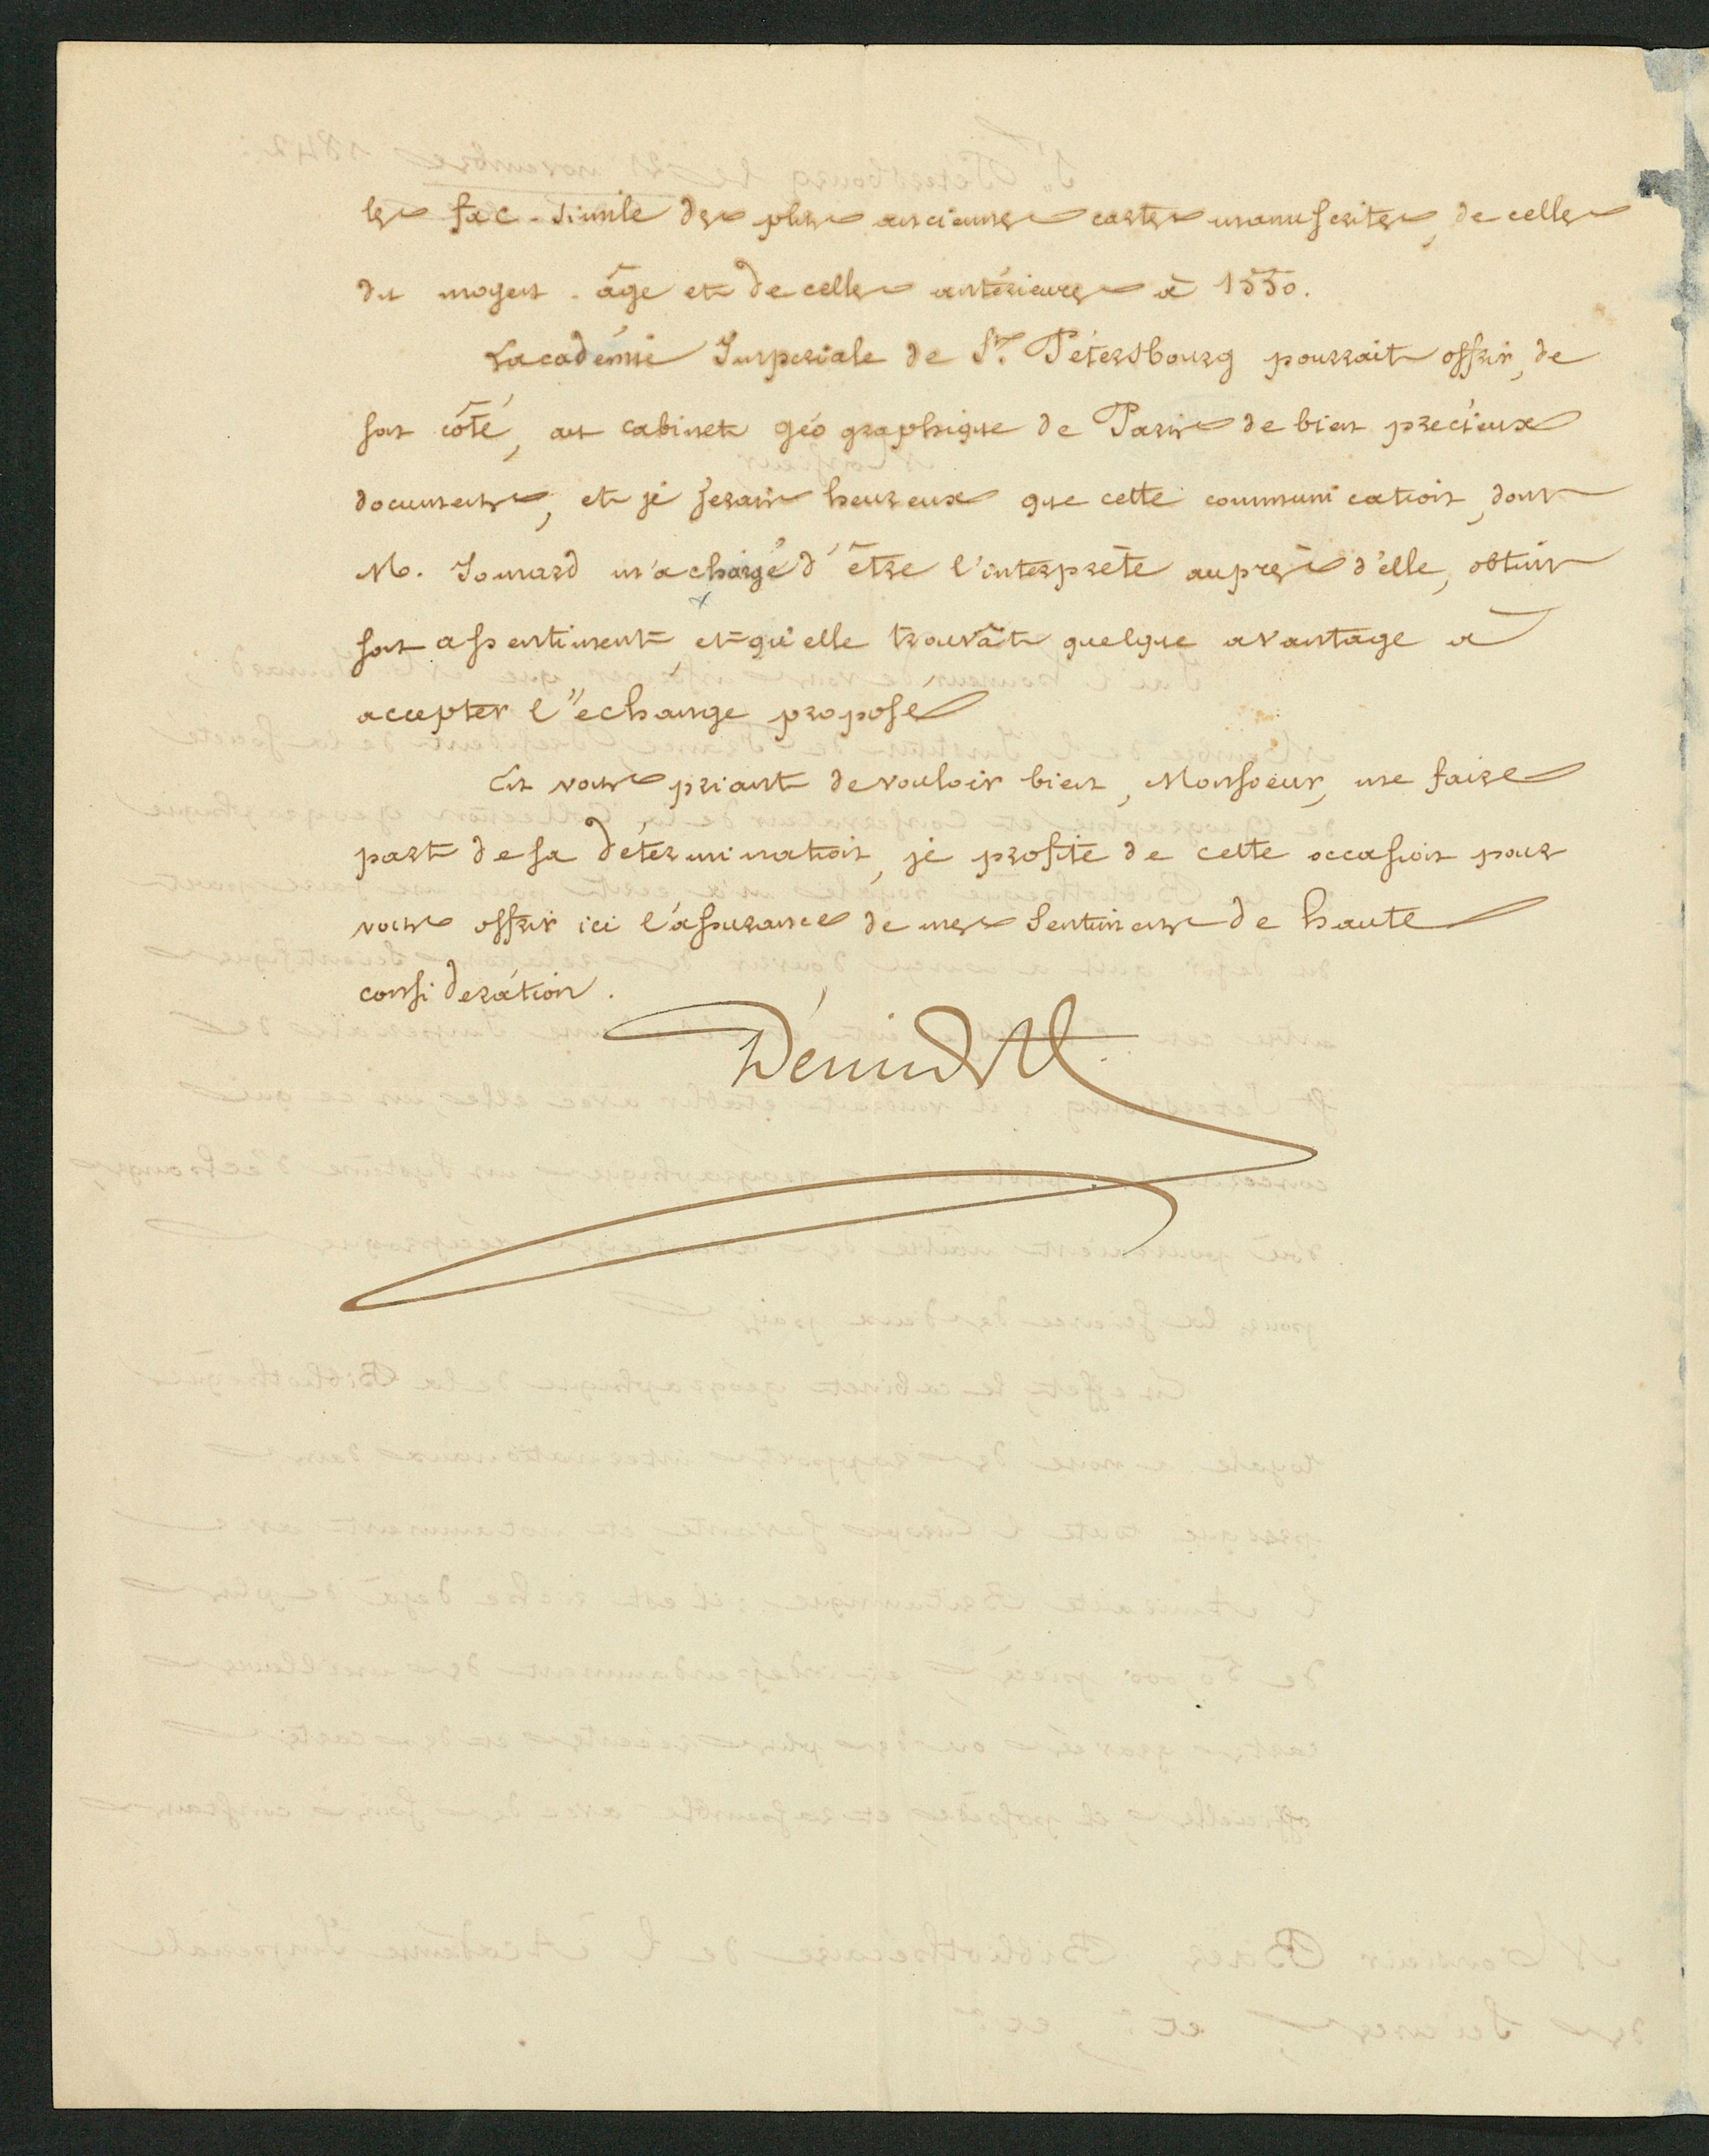 les fac-simile des plus anciennes cartes manuscrites, de celles
du moyen-âge et de celles antérieures à 1550.
L'académie Imperiale de St. Pétersbourg pourrait offrir, de
son côté, au cabinet géographique de Paris de bien precieux
documens, et je serais heureux que cette communication, dont
M. Jomard m'a chargé d'être l'interprète auprès d'elle, obtint
son assentiment et qu'elle trouvât quelque avantage à
accepter l'échange proposé
En vous priant de vouloir bien, Monsieur, me faire
part de sa détermination, je profite de cette occasion pour
vous offrir ici l'assurance de mes sentimens de haute
consideration.
Démidoff